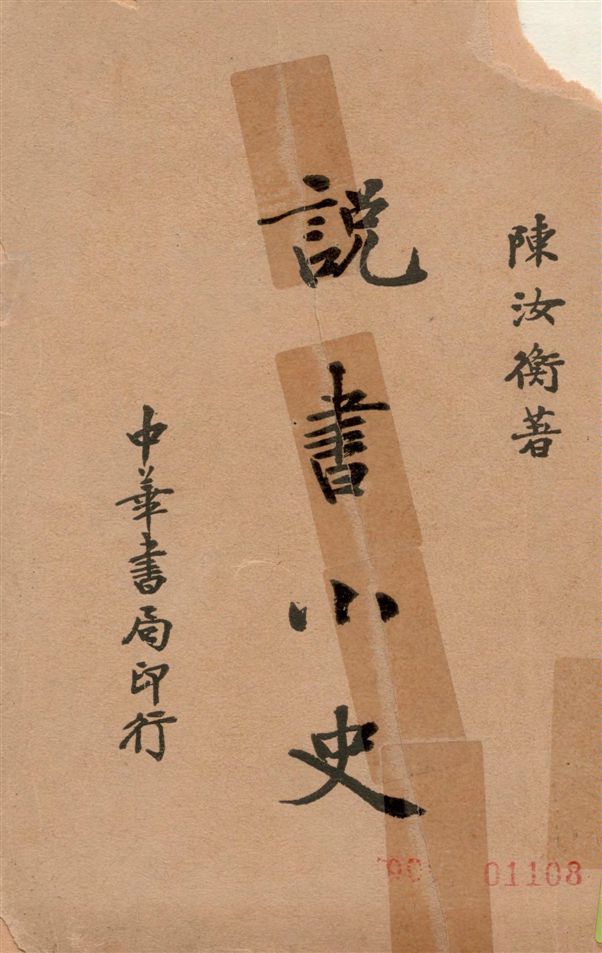 陳汝衡著
説書小史
中華書局印行
01108